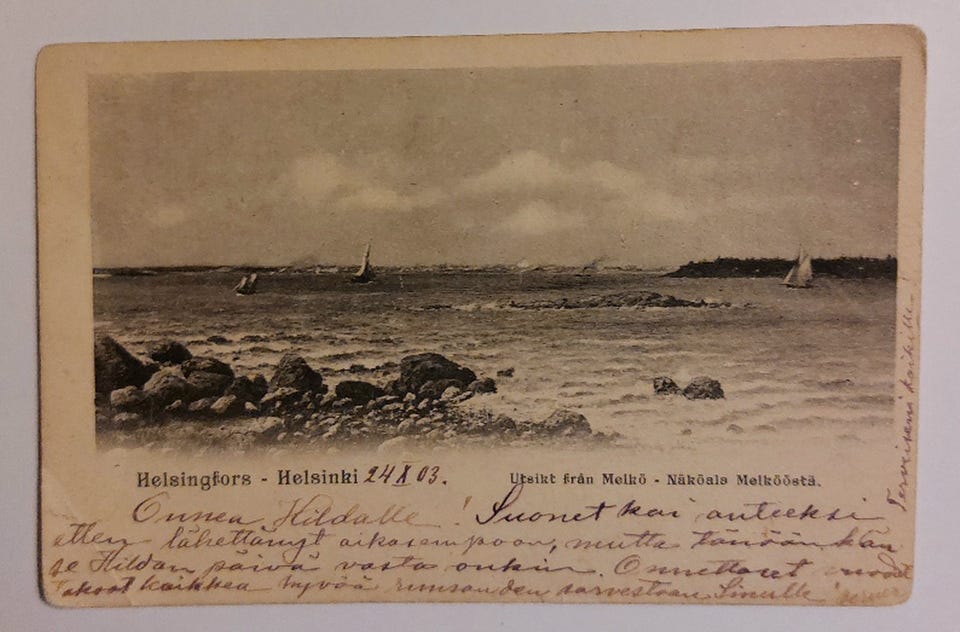 Helsingfors - Helsinki 24 X 03.
Utsikt från Melkö - Näköala Melköästä.
Onnea Hildalle! Suonet kai anteeksi
etten lähettänyt aikasempaan, mutta tänään kän
se Hildan päivä vasta onkin. Onnettaret vuod
akoot kaikkea hyvää runsauden sarvestaan Sinulle
Terveiseni kaikille!